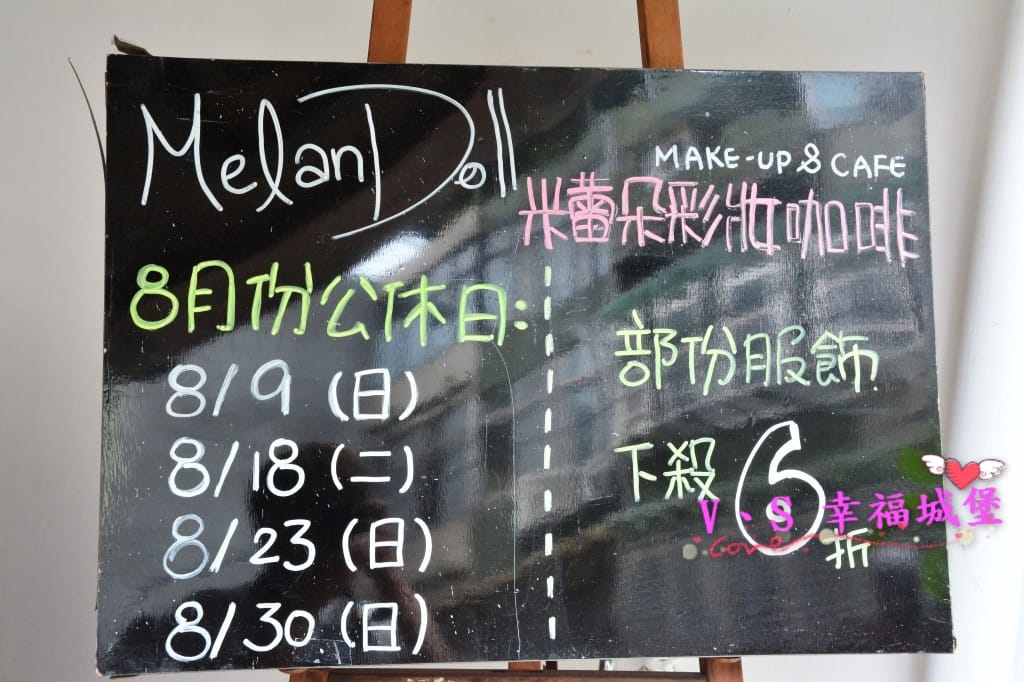 MelanDoll
MAKE-UP & CAFE
米蕾朵彩妝咖啡
8月份公休日:
8/9 (日)
8/18 (二)
8/23 (日)
8/30 (日)
部份服飾
下殺 6 折
V、S 幸福城堡
Love